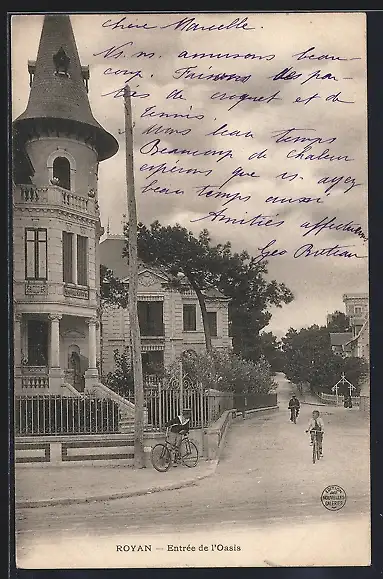 Chère Marcelle.
Ns. ns. amusons beau-
coup. Faisons des par
ties de croquet et de
tennis.
Avons beau temps
Beaucoup de chaleur
espérons que vs. ayez
beau temps aussi.
Amitiés affectueuses
Geo
ROYAN — Entrée de l'Oasis
NOUVELLES
GALERIES